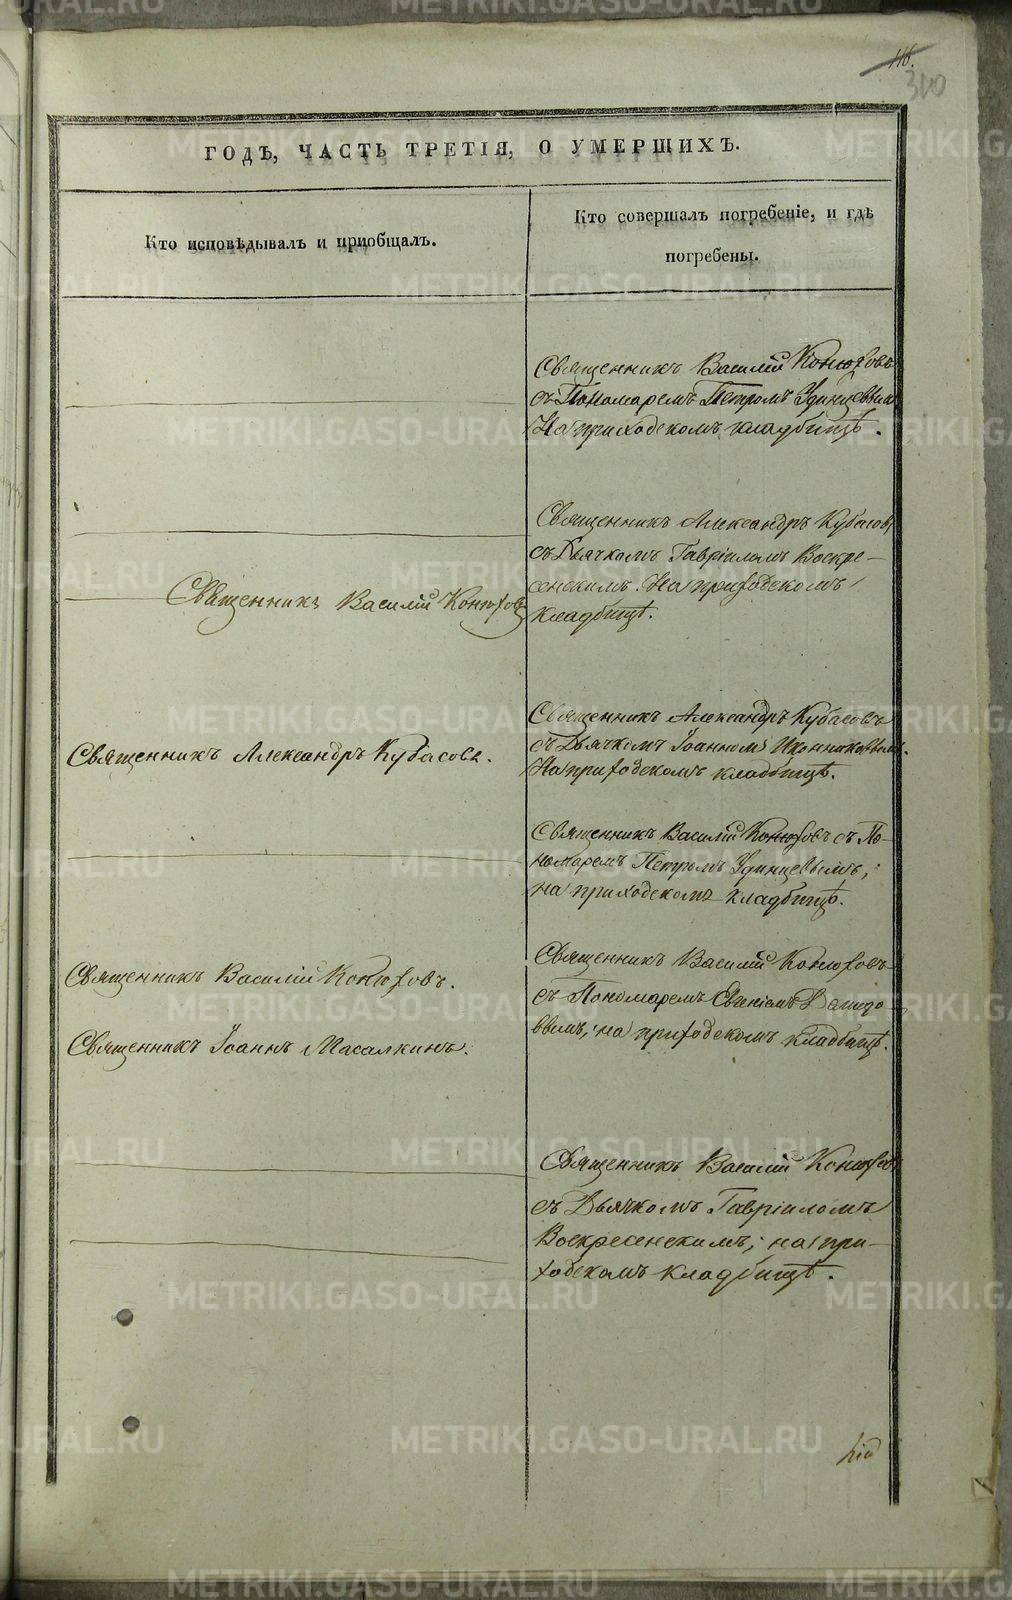 116.
300
ГОДЪ, ЧАСТЬ ТРЕТІЯ, О УМЕРШИХЪ.
Кто исповѣдывалъ и пріобщалъ.
Кто совершалъ погребеніе, и гдѣ
погребены.
Священникъ Василій Конюховъ
съ Пономаремъ Петромъ Удинцевымъ
На приходскомъ кладбищѣ.
Священникъ Александръ Кубасовъ
съ Дьячкомъ Гавріиломъ Воскре-
сенскимъ. На приходскомъ
кладбищѣ.
Священникъ Василій Конюховъ
Священникъ Александръ Кубасовъ
съ Дьячкомъ Іоанномъ Иконниковымъ.
На приходскомъ кладбищѣ.
Священникъ Александръ Кубасовъ.
Священникъ Василій Конюховъ съ По-
номаремъ Петромъ Удинцевымъ,
на приходскомъ кладбищѣ.
Священникъ Василій Конюховъ
съ Пономаремъ Евгеніемъ
вымъ; на приходскомъ кладбищѣ.
Священникъ Василій Конюховъ.
Священникъ Іоаннъ Масалкинъ.
Священникъ Василій Конюховъ
съ Дьячкомъ Гавріиломъ
Воскресенскимъ; на при-
ходскомъ кладбищѣ.
METRIKI.GASO-URAL.RU